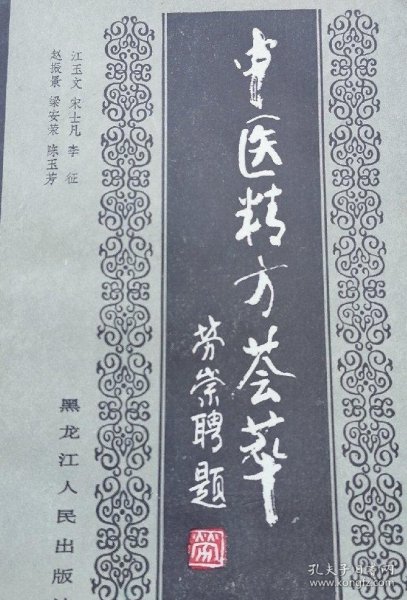 中医精方荟萃
劳崇聘题
劳
江玉文 宋士凡 李征
赵振景 梁安荣 陈玉芳
黑龙江人民出版社
孔夫子旧书网
www.kongfz.com